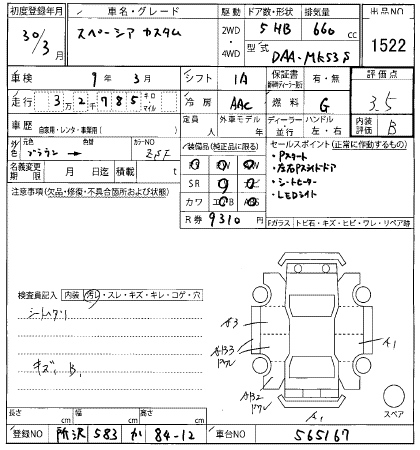 初度登録年月 車名・グレード 駆動 ドア数・形状 排気量 出品NO
30/3月 スペーシア カスタム 2WD・4WD 5 HB 660 cc 1522
型式 DAA-MK53S
車検 9年 3月 シフト IA 保証書 有・無 評価点
走行 3万2千785 キロ・マイル 冷房 AAC 燃料 G 3.5
車歴 自家用・レンタ・事業用( ) 定員 人 外車モデル 年 ディーラー 並行 ハンドル 左・右 内装評価 B
外色 元色 ブラウン 色替 カラーNO ZSF
名義変更期限 月 日迄 積載 t
装備品(純正品に限る)
SR
カワ
R券 9310 円
セールスポイント(正常に作動するもの)
・Pスタート
・左右Pスライドドア
・シートヒーター
・LEDライト
注意事項(欠品・修復・不具合箇所および状態)
Fガラス トビ石・キズ・ヒビ・ワレ・リペア跡
検査員記入 内装 汚レ・スレ・キズ・キレ・コゲ・穴
シートヘタリ
キズ、B1
A3
AB3
ドワレ
AB2
ドワレ
A1
A1
スペア
長さ cm 幅 cm 高さ cm
登録NO 所沢 583 か 84-12 車台NO 565167